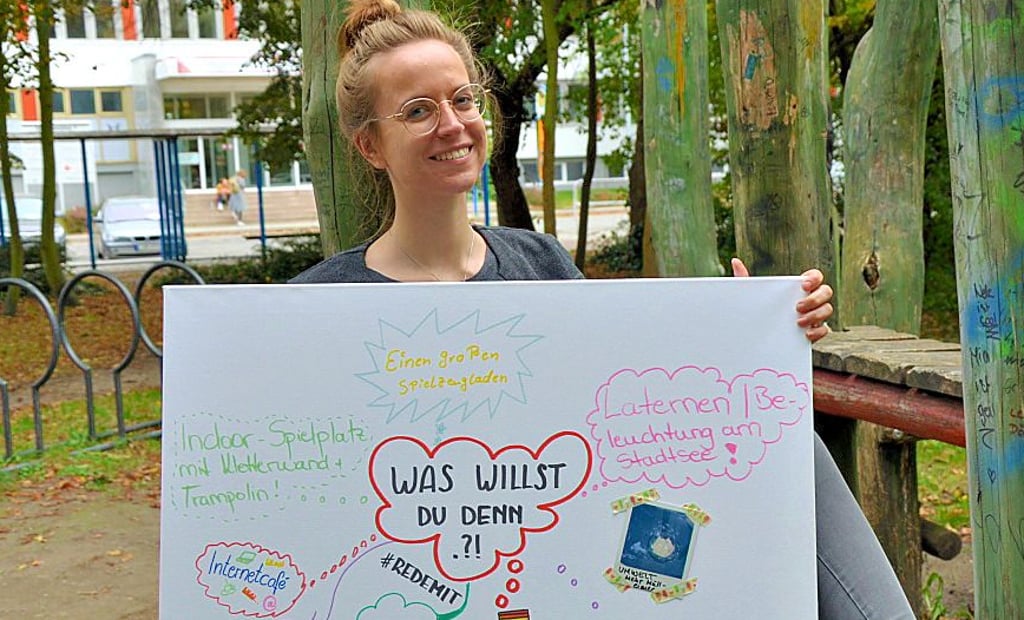 Einen großen
Spielzeugladen
Laternen / Be-
leuchtung am
Stadtsee!
Indoor-Spielplatz
mit Kletterwand +
Trampolin!
WAS WILLST
DU DENN
.?!
Internetcafé
#REDEMIT
UMWELT